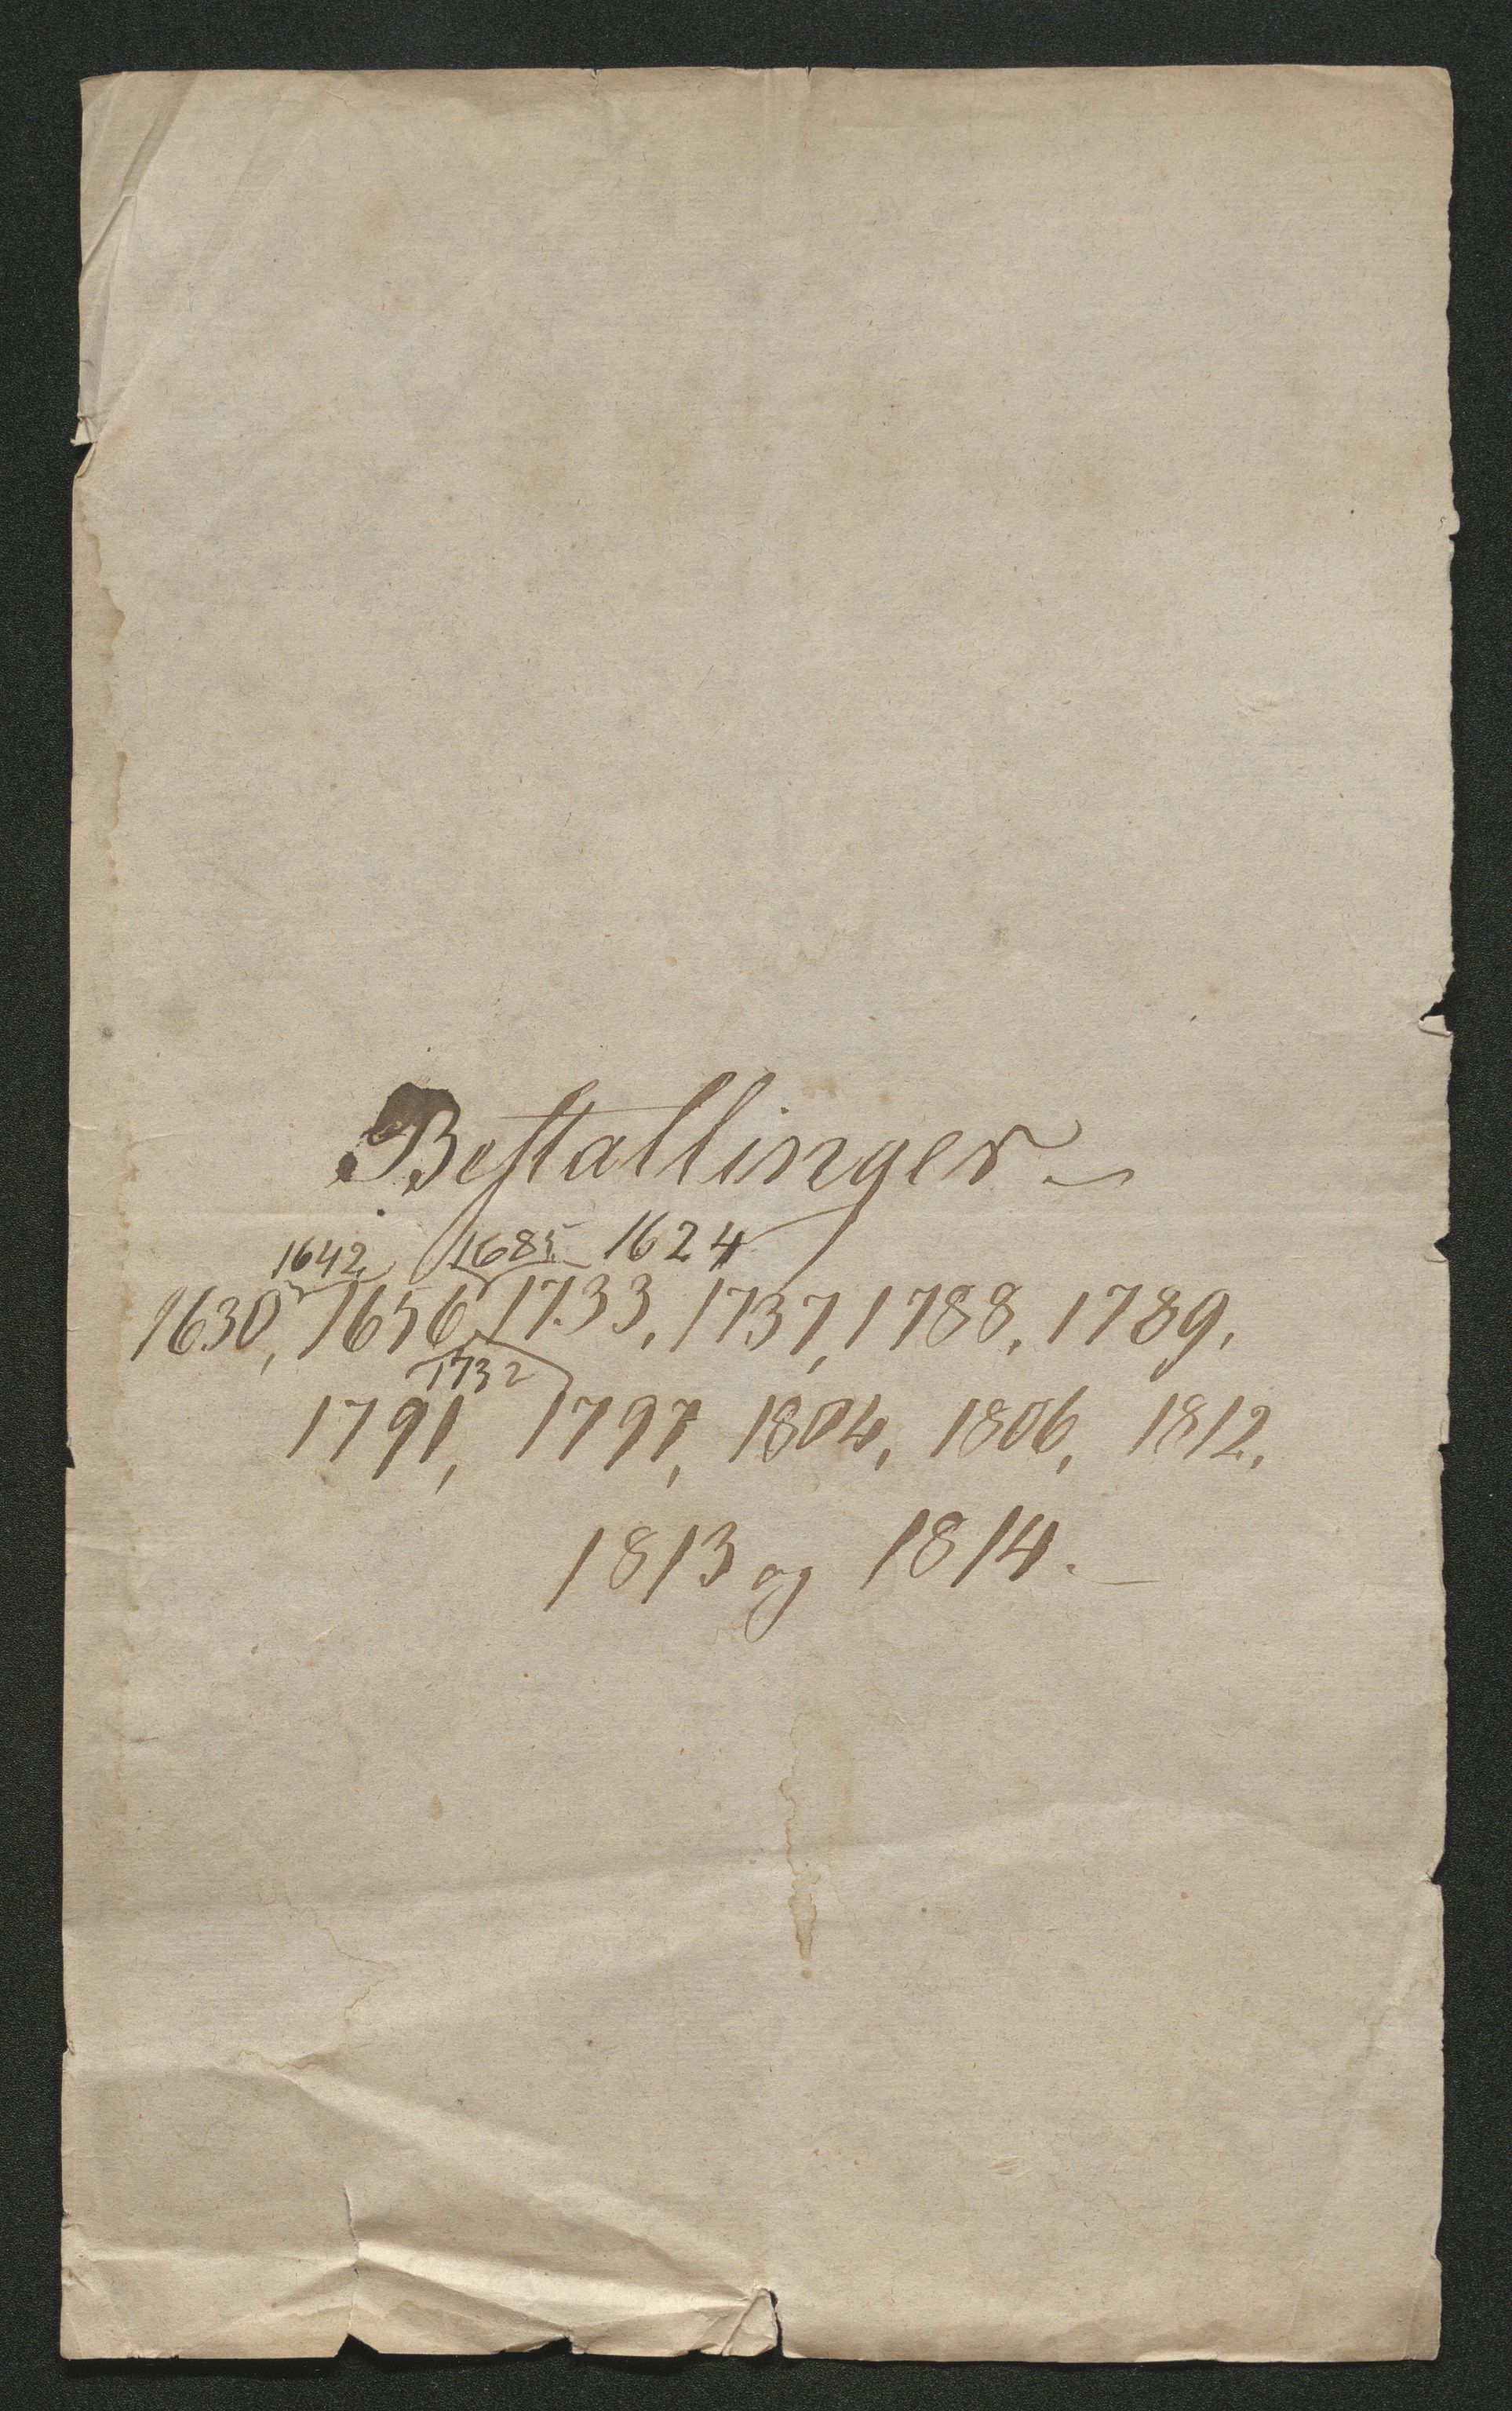 Bestallinger
1642 1685 1624
1630, 1656, 1733, 1737, 1788, 1789,
1732
1791, 1797, 1804, 1806, 1812,
1813 og 1814.